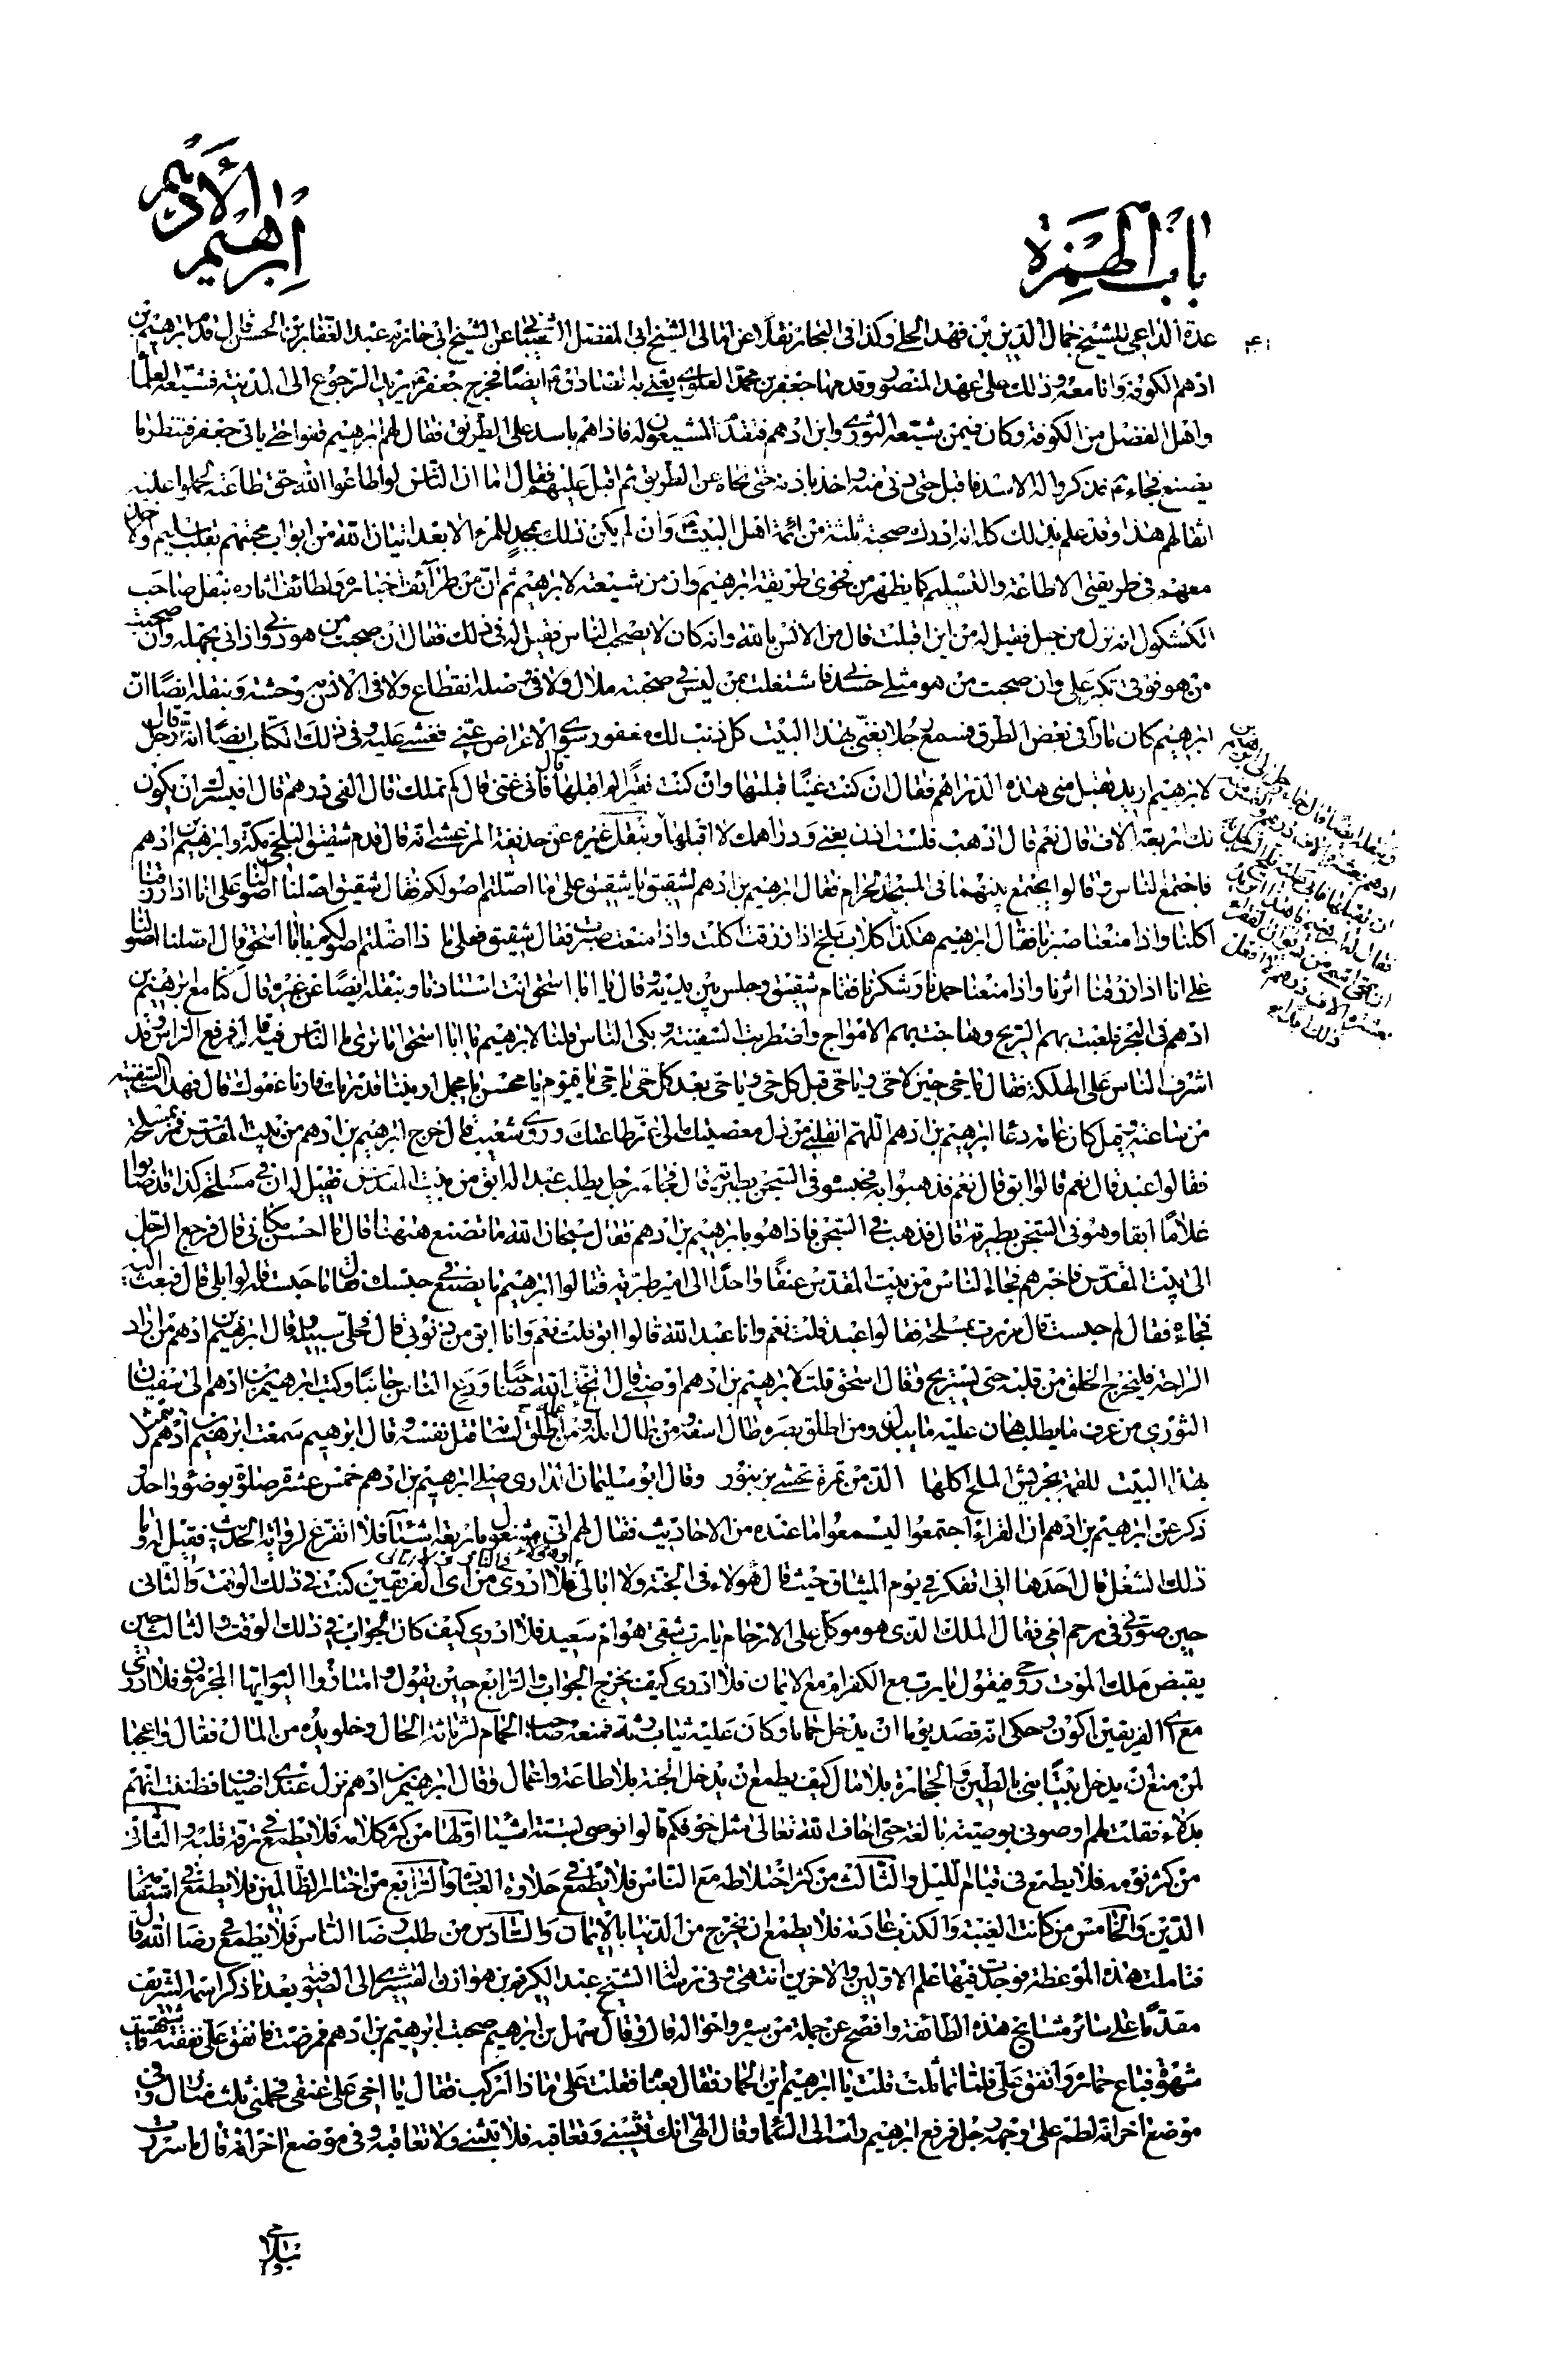 باب الهمزة
ابرهيم الادهم
٤١
عدة الداعي للشيخ جمال الدين بن فهد الحلي وكذا في البحار نقلا عن امالي الشيخ ابي المفضل الشيباني عن الشيخ ابي حازم عبد الغفار بن الحسن قال قدم ابرهيم بن
ادهم الكوفة وانا معه وذلك على عهد المنصور وقدمها جعفر بن محمد العلوي يعني به الصادق ع ايضا فخرج جعفر ع يريد الرجوع الى المدينة فشيعه العلماء
واهل الفضل من الكوفة وكان فيمن شيعه الثوري وابن ادهم فتقدم المشيعون له فاذا هم باسد على الطريق فقال لهم ابرهيم قفوا حتى ياتي جعفر فننظر ما
يصنع فجاء ع فذكروا له الاسد فاقبل حتى دنى منه واخذ باذنه حتى نحاه عن الطريق ثم اقبل عليهم فقال اما ان الناس لو اطاعوا الله حق طاعته لحملوا عليه
اثقالهم هذا وقد علم بذلك كله انه ادرك صحبة ثلثة من ائمة اهل البيت ع وان لم يكن ذلك بمجد للمرء الا بعد اتيان الله من ابواب محبتهم بقلب سليم وكان
معهم في طريقتي الاطاعة والتسليم كما يظهر من فحوى طريقة ابرهيم وان من شيعته لابرهيم ثم ان من طرائف اخباره ولطائف اثاره بنقل صاحب
الكشكول انه نزل من جبل فقيل له من اين اقبلت قال من الانس بالله وانه كان لا يصحب الناس فقيل له في ذلك فقال ان صحبت من هو دوني اذاني بجهله وان صحبت
من هو فوقي تكبر علي وان صحبت من هو مثلي حسدني فاشتغلت بمن ليس في صحبته ملال ولا في وصله انقطاع ولا في الانس به وحشة وبنقله ايضا ان
ابرهيم كان مارا في بعض الطرق فسمع رجلا يغني بهذا البيت كل ذنب لك مغفور سوى الاعراض عني فغشي عليه وفي ذلك الكتاب ايضا انه قال رجل
لابرهيم اريد تقبل مني هذه الدراهم فقال ان كنت غنيا قبلتها وان كنت فقيرا لم اقبلها قال فاني غني قال كم تملك قال الفي درهم قال افيسرك ان يكون
لك اربعة الاف قال نعم قال اذهب فلست اذن بغني ودراهمك لا اقبلها وبنقل غيره عن حذيفة المرعشي انه قال قدم شقيق البلخي مكة وابرهيم بن ادهم
فاجتمع الناس وقالوا يجتمع بينهما في المسجد الحرام فقال ابرهيم بن ادهم لشقيق يا شقيق على ما اصلتم اصولكم فقال شقيق اصلنا اصولنا على انا اذا رزقنا
اكلنا واذا منعنا صبرنا فقال ابرهيم هكذا كلاب بلخ اذا رزقت اكلت واذا منعت صبرت فقال شقيق فعلى ما ذا اصلتم اصولكم يا ابا اسحق قال اصلنا اصولنا
على انا اذا رزقنا اثرنا واذا منعنا حمدنا وشكرنا فقام شقيق وجلس بين يديه وقال يا ابا اسحق انت استاذنا وبنقله ايضا عن غيره قال كنا مع ابرهيم بن
ادهم في البحر فلعبت بهم الريح وهاجت بهم الامواج واضطربت السفينة وبكى الناس قلنا لابرهيم يا ابا اسحق اما ترى ما الناس فيه قال فرفع الراس وقد
اشرف الناس على الهلكة فقال يا حي حين لا حي ويا حي قبل كل حي ويا حي بعد كل حي يا حي يا قيوم يا محسن يا مجمل اريتنا قدرتك فارنا عفوك قال فهدات السفينة
من ساعته وقيل كان عامة دعاء ابرهيم بن ادهم اللهم انقلني من ذل معصيتك الى عز طاعتك وروى شعيب قال خرج ابرهيم بن ادهم من بيت المقدس فمر بمسلحة
فقالوا عبد قال نعم قالوا ابق قال نعم فذهبوا به فحبسوه في السجن بطبرية قال فجاء رجل يطلب عبدا له ابق من بيت المقدس فقيل له ان في مسلخ كذا قد صابوا
غلاما ابقا وهو في السجن بطبرية قال فذهب في السجن فاذا هو بابرهيم بن ادهم فقال سبحان الله ما تصنع ههنا قال ما احسن مكاني قال فرجع الرجل
الى بيت المقدس فاخبرهم فجاء الناس من بيت المقدس عنقا واحدا الى امير طبرية فقالوا ابرهيم ما يصنع في حبسك قال ما حبسته قالوا بلى قال فبعث اليه
فجاء فقال لم حبست قال مررت بمسلحة فقالوا عبد قلت نعم وانا عبد الله قالوا ابق قلت نعم وانا ابق من ذنوبي قال فخلى سبيله وقال ابرهيم بن ادهم من اراد
الراحة فليخرج الخلق من قلبه حتى يستريح وقال اسحق قلت لابرهيم بن ادهم اوصني قال اتخذ الله صاحبا ودع الناس جانبا وكتب ابرهيم بن ادهم الى سفيان
الثوري من عرف ما يطلب هان عليه ما يبذل ومن اطلق بصره طال اسفه ومن طال امله ومن اطلق لسانه قتل نفسه وقال ابرهيم سمعت ابرهيم بن ادهم يتمثل
بهذا البيت للقمة بجريش الملح اكلها الذ من تمرة تحشى بزنبور وقال ابو سليمان الداراني صلى ابرهيم بن ادهم خمس عشرة صلوة بوضوء واحد
ذكر عن ابرهيم بن ادهم ان القراء اجتمعوا ليسمعوا ما عنده من الاحاديث فقال لهم اني مشغول باربعة اشياء فلا اتفرغ لرواية الحديث فقيل له وما
ذلك الشغل قال احدها اني اتفكر في يوم الميثاق حيث قال هؤلاء في الجنة ولا ابالي وهؤلاء في النار ولا ابالي فلا ادري من اي الفريقين كنت في ذلك الوقت والثاني
حين صورني في رحم امي فقال الملك الذي هو موكل على الارحام يا رب شقي هو ام سعيد فلا ادري كيف كان الجواب في ذلك الوقت والثالث حين
يقبض ملك الموت روحي فيقول يا رب مع الكفر ام مع الايمان فلا ادري كيف يخرج الجواب والرابع حين يقول وامتازوا اليوم ايها المجرمون فلا ادري
مع اي الفريقين اكون وحكى انه قصد يوما ان يدخل حماما وكان عليه ثياب رثة فمنعه صاحب الحمام لرثاثة الحال وخلو يده من المال فقال وا عجبا
لمن منع ان يدخل بيتا بني بالطين والحجارة بلا مال كيف يطمع ان يدخل الجنة بلا طاعة واعمال وقال ابرهيم بن ادهم نزل عندي اضياف فظننت انهم
بدلاء فقلت لهم اوصوني بوصية بالغة حتى اخاف الله تعالى مثل خوفكم قالوا نوصي بستة اشياء اولها من كثر كلامه فلا يطمع في رقة قلبه والثاني
من كثر نومه فلا يطمع في قيام الليل والثالث من كثر اختلاطه مع الناس فلا يطمع في حلاوة العبادة والرابع من اختار الظالمين فلا يطمع في استقامة
الدين والخامس من كانت الغيبة والكذب عادته فلا يطمع ان يخرج من الدنيا بالايمان والسادس من طلب رضا الناس فلا يطمع في رضا الله قال
فتاملت هذه الموعظة فوجدت فيها علم الاولين والاخرين انتهى وفي رسالة الشيخ عبد الكريم بن هوازن القشيري الى الصوفية بعد ما ذكر اسمه الشريف
مقدما على سائر مشايخ هذه الطائفة وافصح عن جملة من سيره واحواله قال وقال سهل بن ابرهيم صحبت ابرهيم بن ادهم فمرضت فانفق علي نفقته فاشتهيت
شهوة فباع حماره وانفق علي فلما تماثلت قلت يا ابرهيم اين الحمار فقال بعنا فقلت على ماذا اركب فقال يا اخي على عنقي فحملني ثلث منازل وفي
موضع اخر انه لطم على وجهه رجل فرفع ابرهيم راسه الى السماء وقال الهي انك تثيبني وتعاقبه فلا تثبني ولا تعاقبه وفي موضع اخر انه قال ما سررت